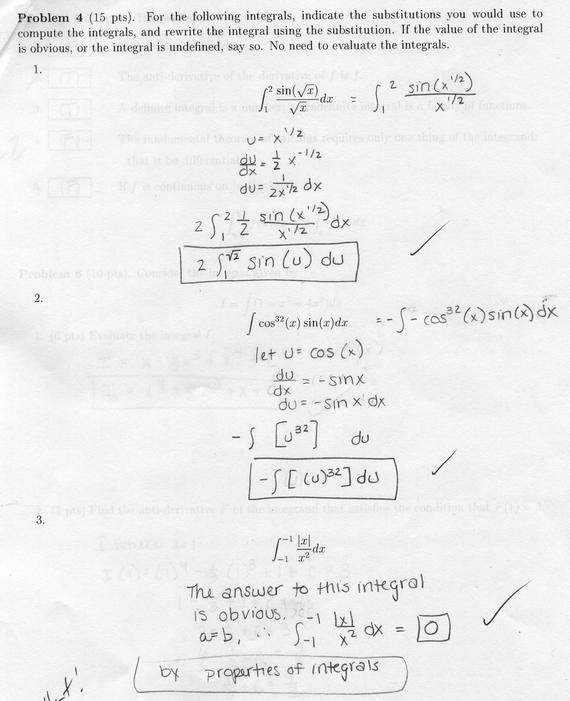 Problem 4 (15 pts). For the following integrals, indicate the substitutions you would use to
compute the integrals, and rewrite the integral using the substitution. If the value of the integral
is obvious, or the integral is undefined, say so. No need to evaluate the integrals.
1.
∫₁² sin(√x)/√x dx = ∫₁² sin(x^1/2)/x^1/2
u = x^1/2
du/dx = 1/2 x^-1/2
du = 1/(2x^1/2) dx
2 ∫₁² 1/2 sin(x^1/2)/x^1/2 dx
2 ∫₁^√2 sin(u) du
2.
∫ cos³²(x) sin(x)dx = -∫ - cos³²(x) sin(x) dx
let u = cos(x)
du/dx = -sinx
du = -sin x dx
-∫ [u³²] du
-∫ [(u)³²] du
3.
∫₋₁^-1 |x|/x² dx
The answer to this integral
is obvious.
a=b, ∴ ∫₋₁^-1 |x|/x² dx = 0
by properties of integrals